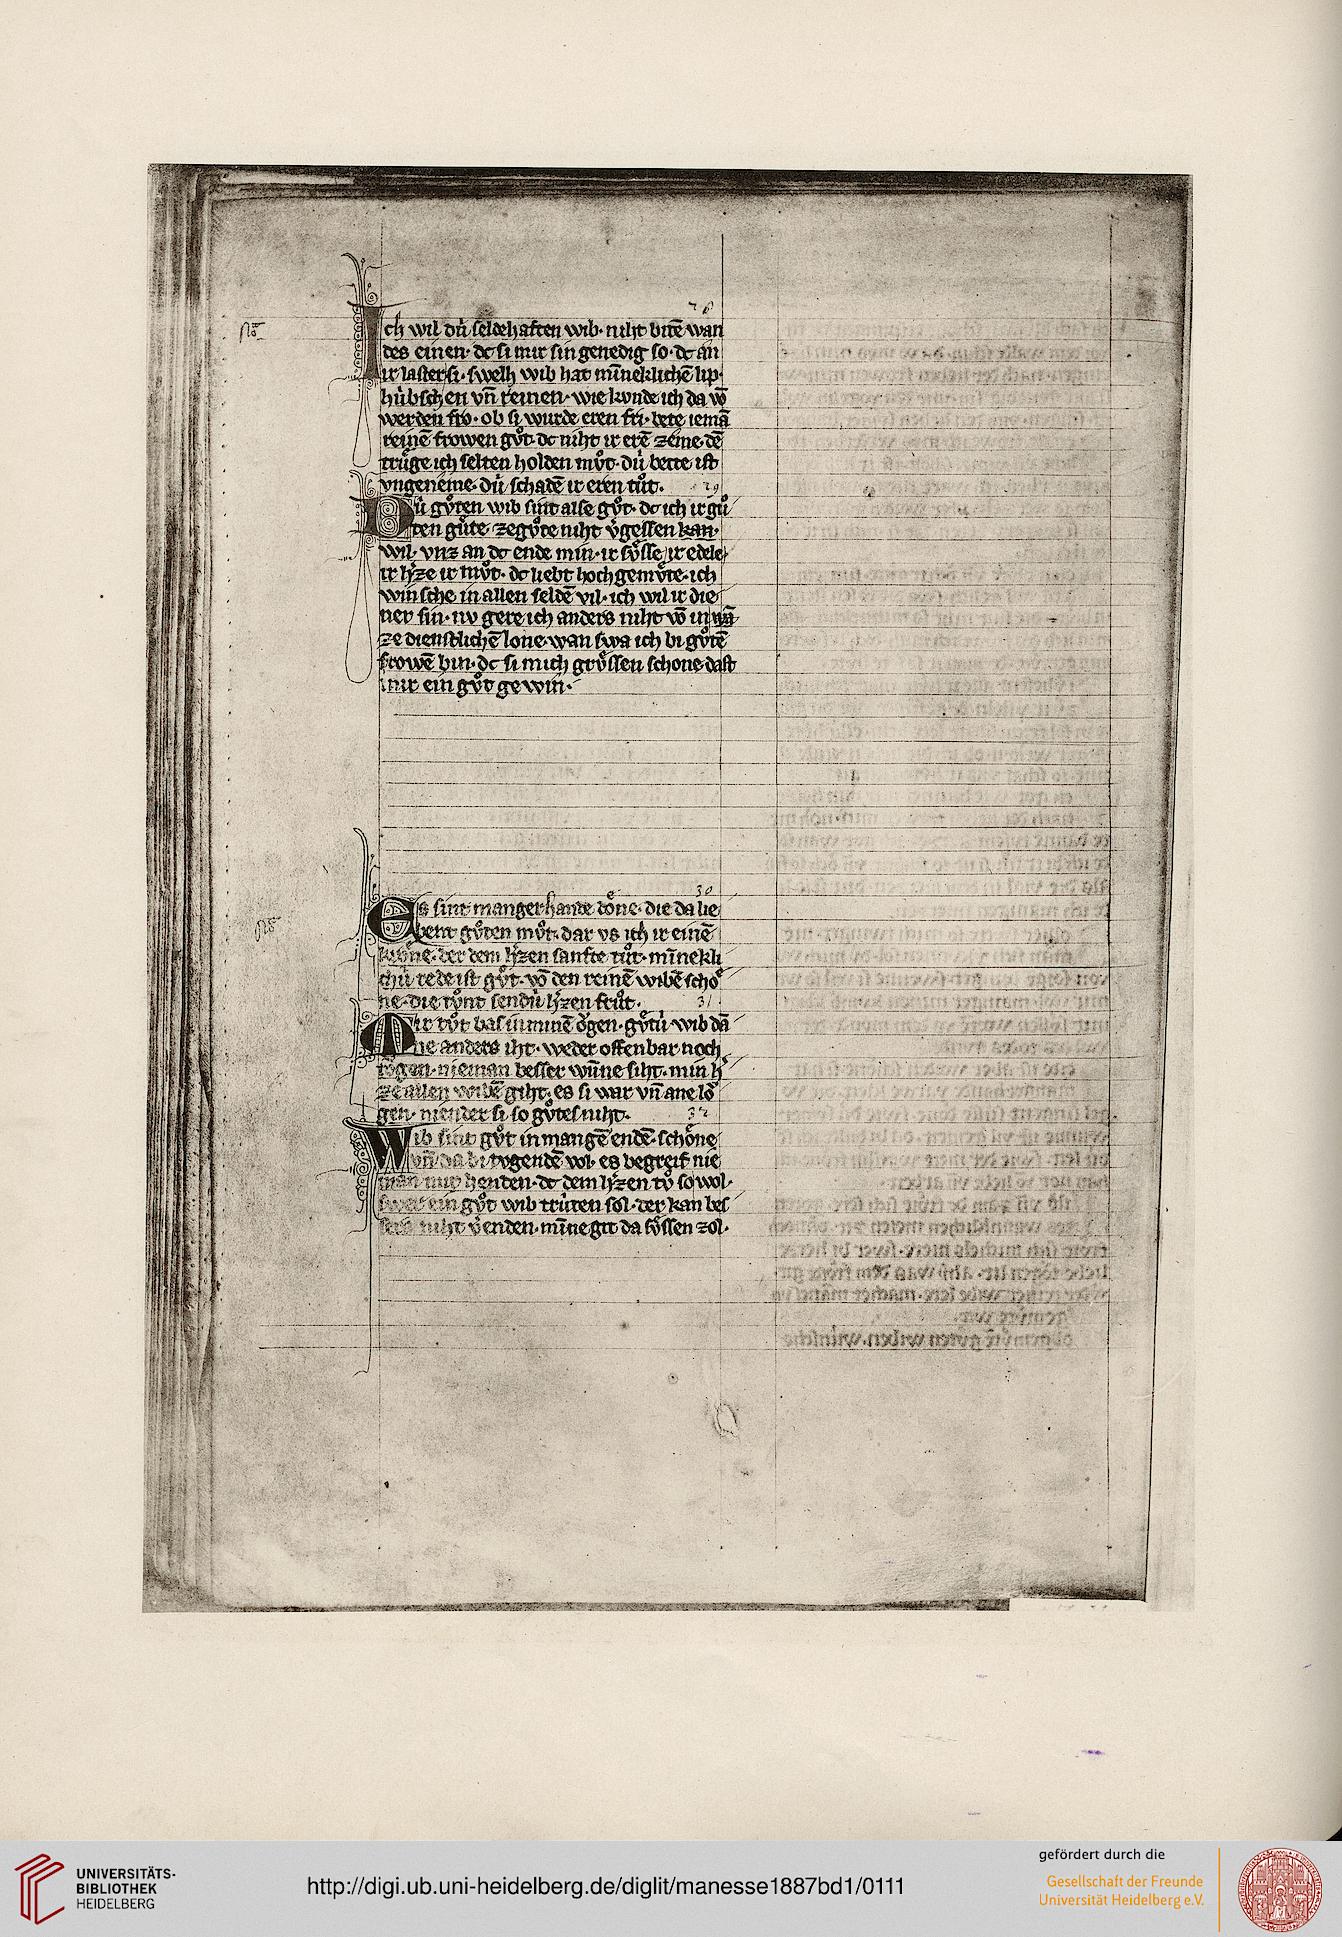 28
Ich wil dú seldehaften wib· niht bitē wan
des einen· dc si mir sin genedig so· dc an
ir laster si· swelh wib hat mīneklichē lip·
húbschen vn̄ reinen· wie konde ich da vō
werden fro· ob si wurde eren fri· bete iemā
reinē frowen gv̊t· dc niht ir erē zeme· dē
trůge ich selten holden mv̊t· dú bette ist
vngeneme· dú schadē ir eren tůt·
29
Dú gv̊ten wib sint alse gv̊t· dc ich ir gů
ten gůte· ze gv̊te niht v̄gessen kan·
wil· vnz an dc ende min· ir sv̊sse ir edele
ir h̄ze ir mv̊t· dc liebt hochgemv̊te· ich
wúnsche in allen seldē vil· ich wil ir die
ner sin· nv gere ich anders niht vō in wā
ze dienstlichē lone· wan swa ich bi gv̊tē
frowē bin· dc si mich grv̊ssen schone· dast
mir ein gv̊t gewin·
30
Es sint manger hande dōͤne· die da lie
bent gv̊ten mv̊t· dar vs ich ir einē
krōͤne· der dem h̄zen sanfte tůt· mīnekli
chú rede ist gv̊t· vō den reinē wibē schoͤ
ne· die tv̊nt sendú h̄zen frůt·
31
Mir tv̊t bas in minē o᷑gen· gv̊tú wib dā
ne anders iht· weder offenbar noch
to᷑gen· nieman besser wūne siht· min h̄
ze allen wibē giht· es si war vn̄ ane lo᷑
gen· niender si so gv̊tes niht·
32
Wib sint gv̊t in mangē endē· schoͤne
vn̄ da bi tvgendē vol· es begreif nie
man mit henden· dc dem h̄zen tv̊ so wol·
swer ein gv̊t wib trúten sol· der kan bes
sers niht v̄enden· mīne git da sv̊ssen zol·
UNIVERSITÄTS-
BIBLIOTHEK
HEIDELBERG
http://digi.ub.uni-heidelberg.de/diglit/manesse1887bd1/0111
gefördert durch die
Gesellschaft der Freunde
Universität Heidelberg e.V.